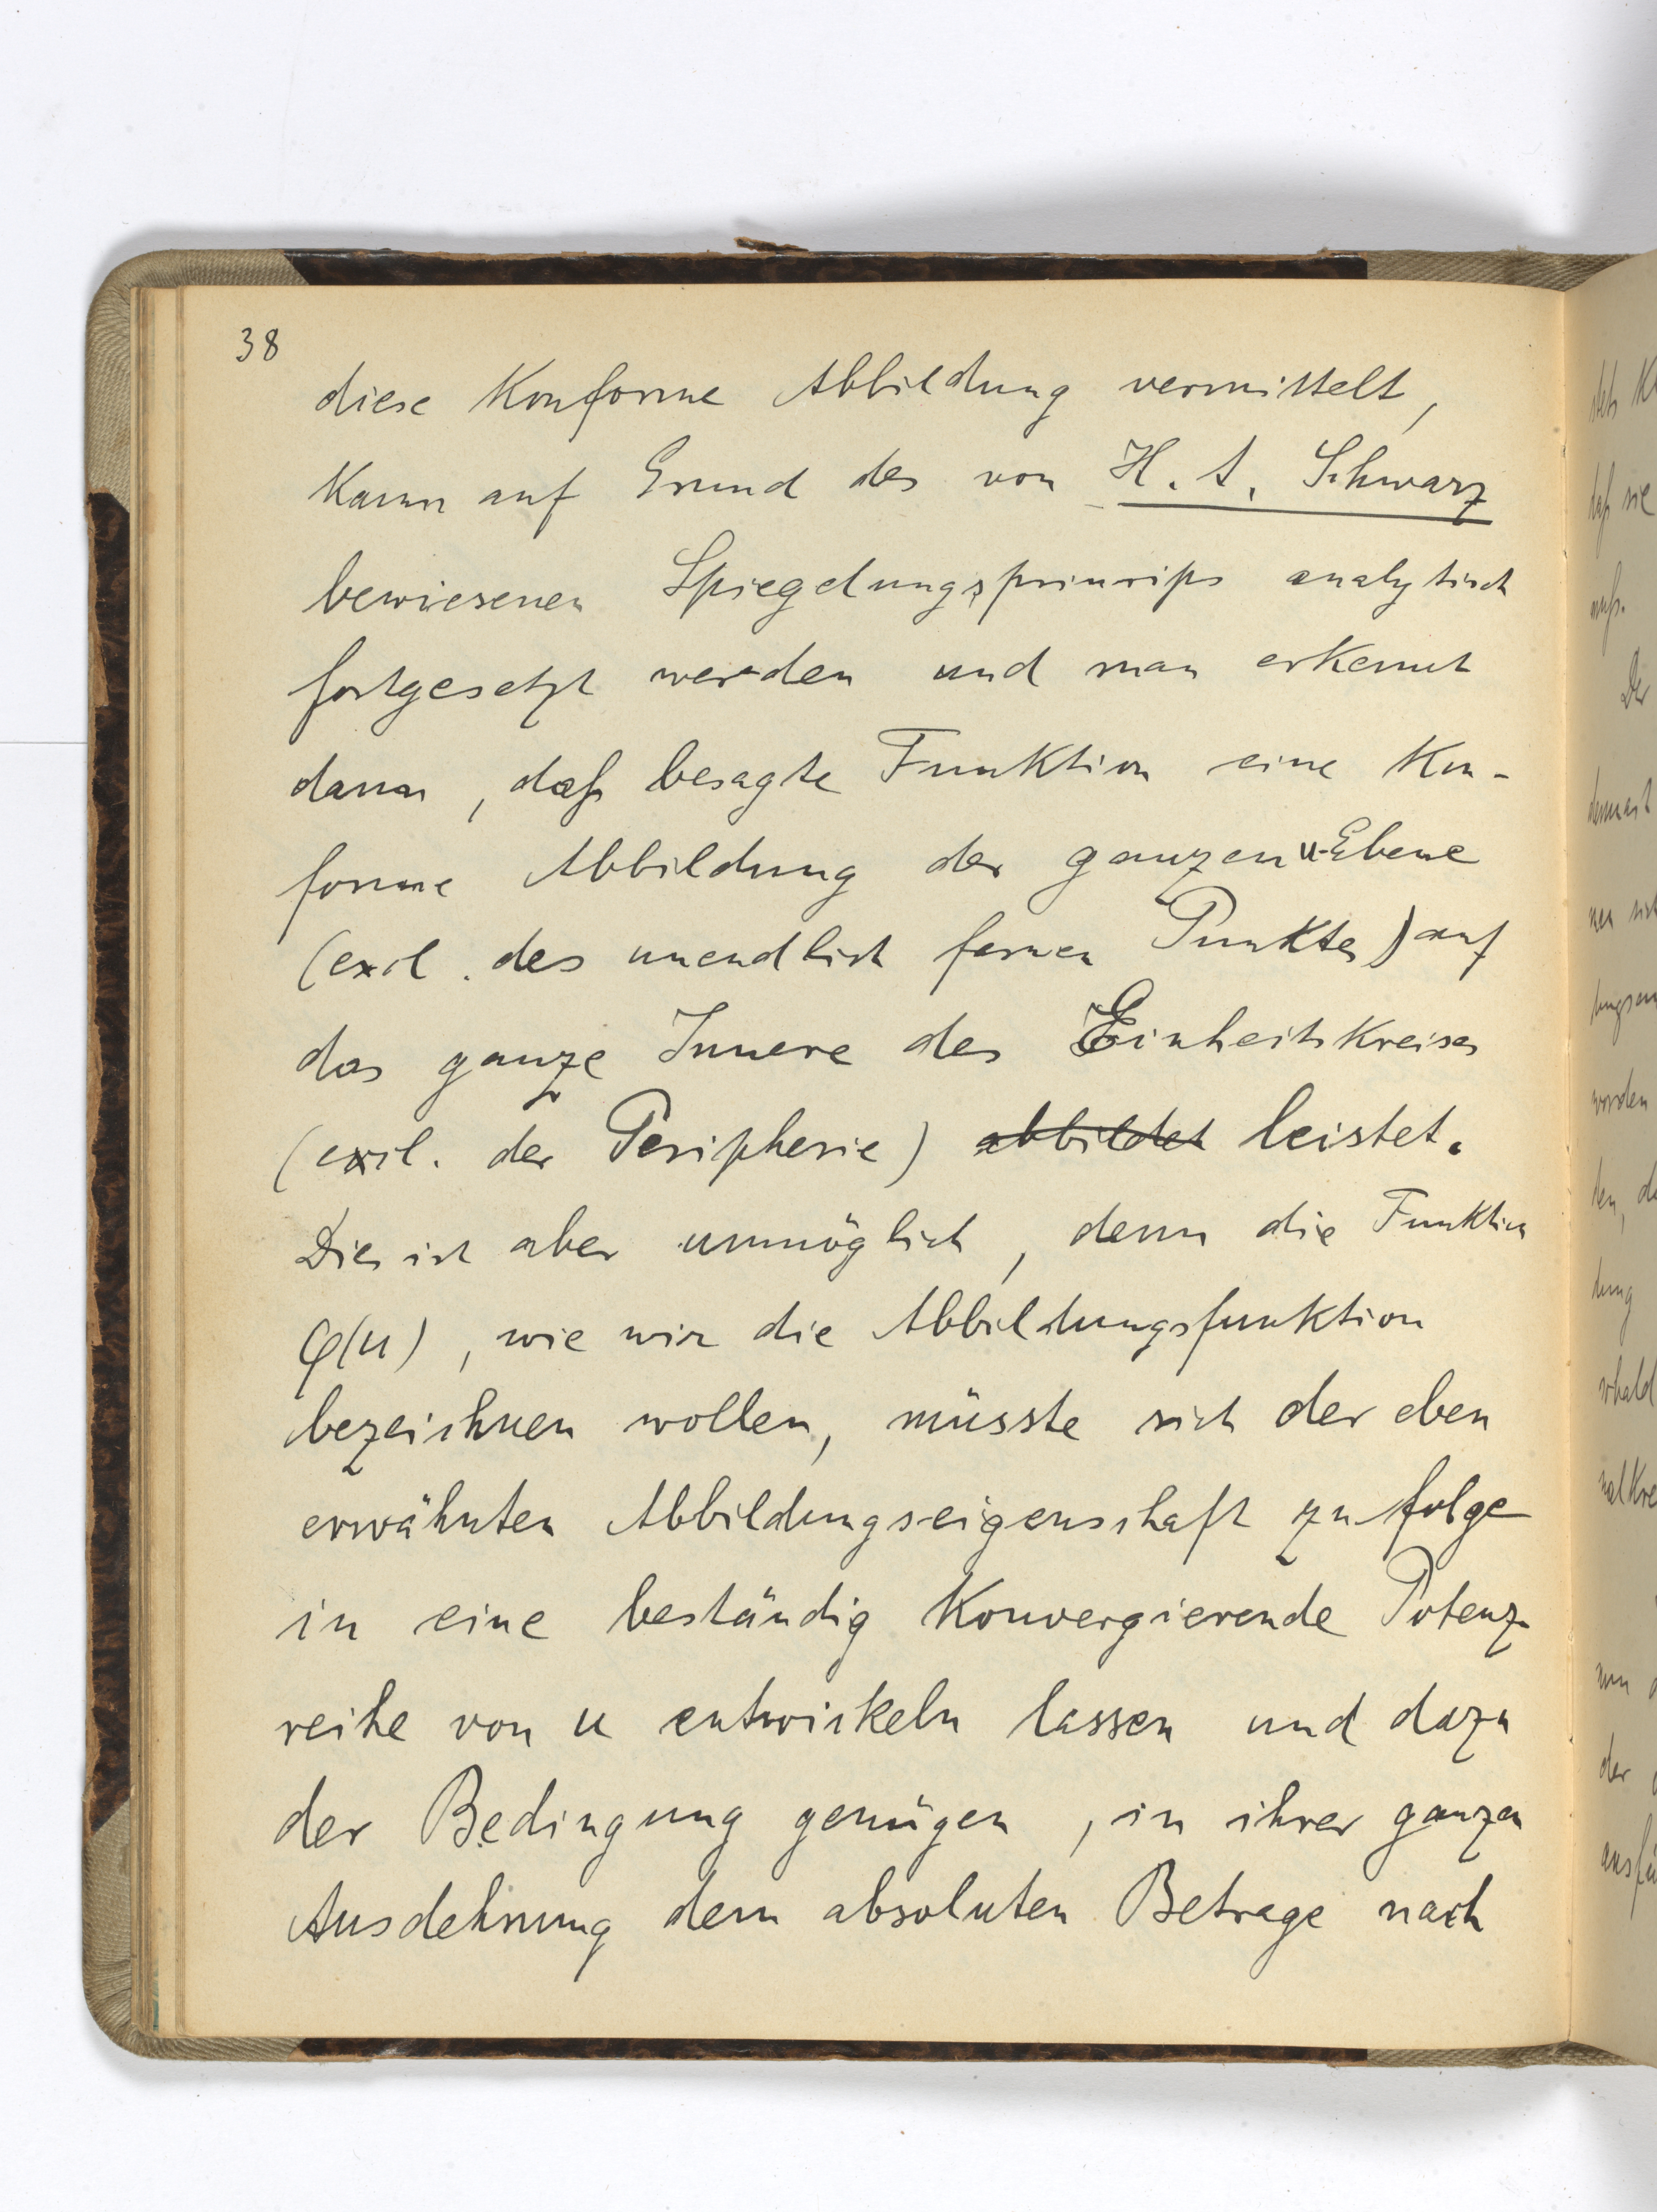 38
diese konforme Abbildung vermittelt,
kann auf Grund des von H. A. Schwarz
bewiesenen Spiegelungsprincips analytisch
fortgesetzt werden und man erkennt
dann, daß besagte Funktion eine kon-
forme Abbildung der ganzen u-Ebene
(excl. des unendlich fernen Punktes) auf
das ganze Innere des Einheitskreises
(excl. der Peripherie) abbildet leistet.
Dies ist aber unmöglich, denn die Funktion
φ(u), wie wir die Abbildungsfunktion
bezeichnen wollen, müsste sich der eben
erwähnten Abbildungseigenschaft zufolge
in eine beständig konvergierende Potenz-
reihe von u entwickeln lassen und dazu
der Bedingung genügen, in ihrer ganzen
Ausdehnung dem absoluten Betrage nach